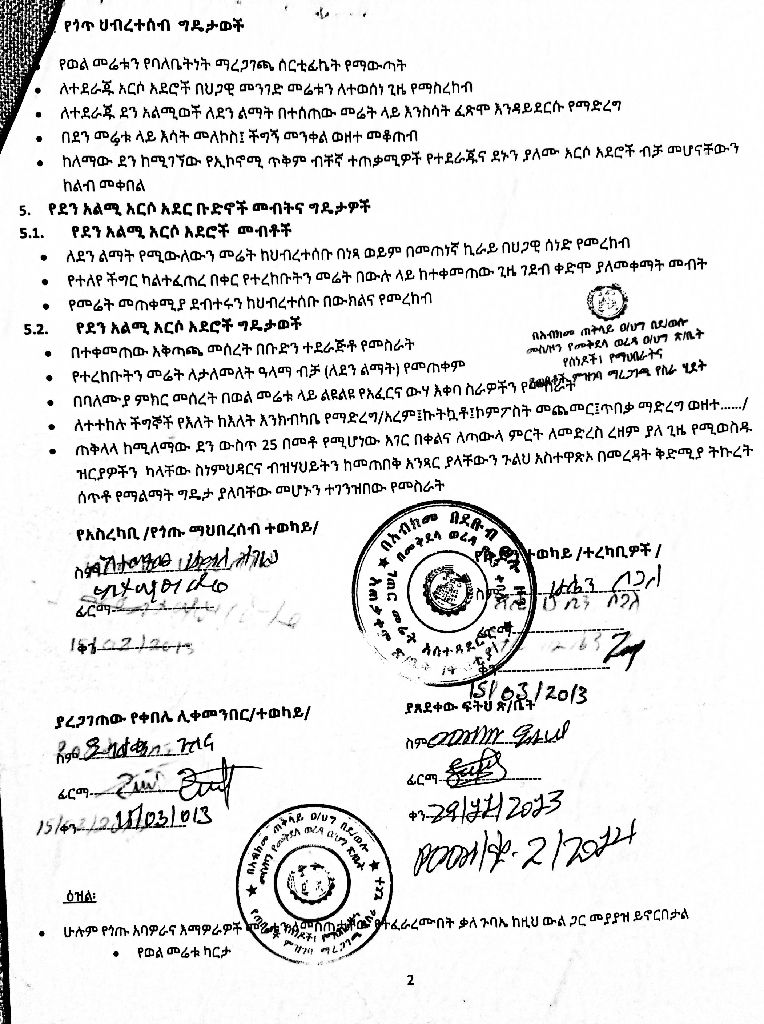 የጎጥ ህብረተሰብ ግዴታወች
• የወል መሬቱን የባለቤትነት ማረጋገጫ ሰርቲፊኬት የማውጣት
• ለተደራጁ አርሶ አደሮች በህጋዊ መንገድ መሬቱን ለተወሰነ ጊዜ የማስረከብ
• ለተደራጁ ደን አልሚወች ለደን ልማት በተሰጠው መሬት ላይ እንስሳት ፈጽሞ እንዳይደርሱ የማድረግ
• በደን መሬቱ ላይ እሳት መለኮስ፤ ችግኝ መንቀል ወዘተ መቆጠብ
• ከለማው ደን ከሚገኘው የኢኮኖሚ ጥቅም ብቸኛ ተጠቃሚዎች የተደራጁና ደኑን ያለሙ አርሶ አደሮች ብቻ መሆናቸውን
ከልብ መቀበል
5. የደን አልሚ አርሶ አደር ቡድኖች መብትና ግዴታዎች
5.1. የደን አልሚ አርሶ አደሮች መብቶች
• ለደን ልማት የሚውለውን መሬት ከህብረተሰቡ በነጻ ወይም በመጠነኛ ኪራይ በህጋዊ ሰነድ የመረከብ
• የተለየ ችግር ካልተፈጠረ በቀር የተረከቡትን መሬት በውሉ ላይ ከተቀመጠው ጊዜ ገደብ ቀድሞ ያለመቀማት መብት
• የመሬት መጠቀሚያ ደብተሩን ከህብረተሰቡ በውክልና የመረከብ
5.2. የደን አልሚ አርሶ አደሮች ግዴታወች
በአብክመ ጠቅላይ ዐ/ህግ በደ/ወሎ
መስ/ዞን የመቅደላ ወረዳ ዐ/ህግ ጽ/ቤት
የሰነዶች፣ የማህበራትና
ምዝገባ ማረጋገጫ የስራ ሂደት
• በተቀመጠው አቅጣጫ መሰረት በቡድን ተደራጅቶ የመስራት
• የተረከቡትን መሬት ለታለመለት ዓላማ ብቻ (ለደን ልማት) የመጠቀም
• በባለሙያ ምክር መሰረት በወል መሬቱ ላይ ልዩልዩ የአፈርና ውሃ እቀባ ስራዎችን የመስራት
• ለተተከሉ ችግኞች የእለት ከእለት እንክብካቤ የማድረግ/አረም፤ኩትኳቶ፤ኮምፖስት መጨመር፤ጥበቃ ማድረግ ወዘተ....../
• ጠቅላላ ከሚለማው ደን ውስጥ 25 በመቶ የሚሆነው አገር በቀልና ለጣውላ ምርት ለመድረስ ረዘም ያለ ጊዜ የሚወስዱ
ዝርያዎችን ካላቸው ስነምህዳርና ብዝሃህይትን ከመጠበቅ አንጻር ያላቸውን ጉልህ አስተዋጽኦ በመረዳት ቅድሚያ ትኩረት
ሰጥቶ የማልማት ግዴታ ያለባቸው መሆኑን ተገንዝበው የመስራት
የአስረካቢ /የጎጡ ማህበረሰብ ተወካይ/
ስም
ፊርማ
ቀን 15/02/2013
ተወካይ /ተረካቢዎች /
ስም
ፊርማ
ቀን
15/03/2013
ያረጋገጠው የቀበሌ ሊቀመንበር/ተወካይ/
ስም
ፊርማ
ቀን 15/03/013
ያጸደቀው ፍትህ ጽ/ቤት
ስም
ፊርማ
ቀን 29/11/2013
2/2014
ዕዝል:
• ሁሉም የጎጡ አባዎራና እማዎራዎች የተፈራረሙበት ቃለ ጉባኤ ከዚህ ውል ጋር መያያዝ ይኖርበታል
• የወል መሬቱ ካርታ
2